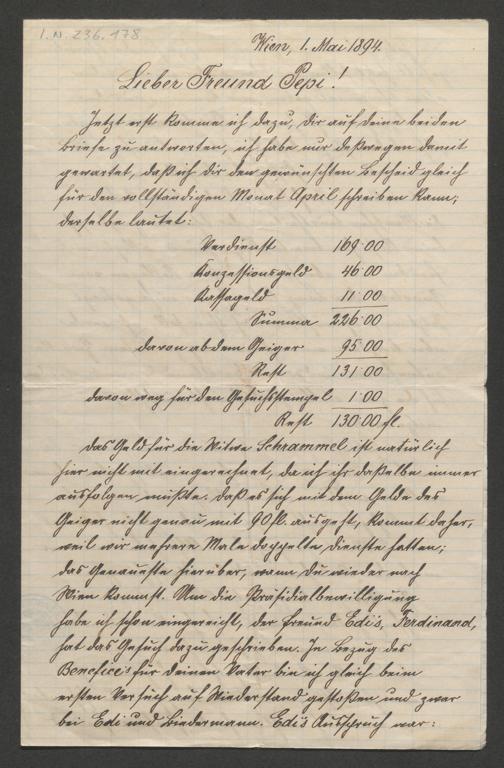 I.N. 236.178
Wien, 1. Mai 1894.
Lieber Freund Pepi!
Jetzt erst komme ich dazu, dir auf deine beiden
briefe zu antworten, ich habe nur deßwegen damit
gewartet, daß ich dir den gewünschten Bescheid gleich
für den vollständigen Monat April schreiben kann;
derselbe lautet:
Verdienst 169·00
Konzessionsgeld 46·00
Kassageld 11·00
Summa 226·00
davon ab dem Geiger 95·00
Rest 131·00
davon weg für den Gesuchsstempel 1·00
Rest 130·00 fl.
das Geld für die Witwe Schrammel ist natürlich
hier nicht mit eingerechnet, da ich ihr daßelbe immer
ausfolgen mußte. daß es sich mit dem Gelde des
Geiger nicht genau mit 90 fl. ausgeht, kommt daher,
weil wir mehrere Male doppelte dienste hatten;
das Genaueste hierüber, wann du wieder nach
Wien kommst. Um die Präsidialbewilligung
habe ich schon eingereicht, der Freund Edi's, Ferdinand,
hat das Gesuch dazu geschrieben. In Bezug des
Benefice's für deinen Vater bin ich gleich beim
ersten Versuch auf Widerstand gestoßen und zwar
bei Edi und Biedermann. Edi's Ausspruch war: